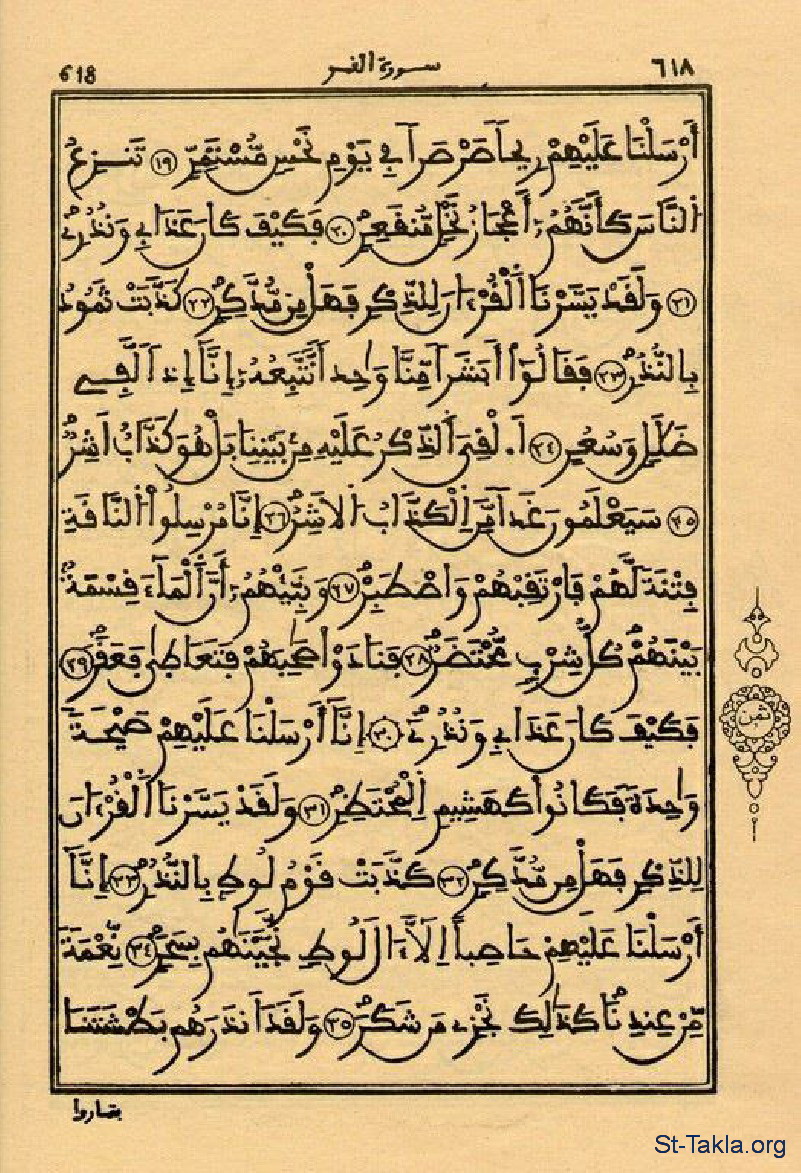 618 سورة القمر ٦١٨
أَرْسَلْنَا عَلَيْهِمْ رِيحاً صَرْصَراً فِے يَوْمِ نَحْسٍ مُّسْتَمِرٍّ ١٩ تَنزِعُ
اُلنَّاسَ كَأَنَّهُمُۥٓ أَعْجَازُ نَخْلٍ مُّنقَعِرٍ ٢٠ فَكَيْفَ كَانَ عَذَابِے وَنُذُرِۦ
٢١ وَلَقَدْ يَسَّرْنَا اَلْقُرْءَانَ لِلذِّكْرِ فَهَلْ مِن مُّدَّكِرٍ ٢٢ كَذَّبَتْ ثَمُودُ
بِالنُّذُرِ ٢٣ فَقَالُوٓاْ أَبَشَراً مِّنَّا وَٰحِداً نَّتَّبِعُهُۥٓ إِنَّآ إِذاً لَّفِے
ضَلَٰلٍ وَسُعُرٍ ٢٤ اَ۟لْقِيَ اَلذِّكْرُ عَلَيْهِ مِنۢ بَيْنِنَا بَلْ هُوَ كَذَّابٌ اَشِرٌ
٢٥ سَيَعْلَمُونَ غَداً مَّنِ اِلْكَذَّابُ اُلَاشِرُ ٢٦ إِنَّا مُرْسِلُواْ اُلنَّاقَةِ
فِتْنَةً لَّهُمْ فَارْتَقِبْهُمْ وَاصْطَبِرْ ٢٧ وَنَبِّئْهُمُۥٓ أَنَّ اَلْمَآءَ قِسْمَةٌۢ
بَيْنَهُمْ كُلُّ شِرْبٍ مُّحْتَضَرٌ ٢٨ فَنَادَوْاْ صَٰحِبَهُمْ فَتَعَاطَىٰ فَعَقَرَ ٢٩
فَكَيْفَ كَانَ عَذَابِے وَنُذُرِۦٓ ٣٠ إِنَّآ أَرْسَلْنَا عَلَيْهِمْ صَيْحَةً
وَٰحِدَةً فَكَانُواْ كَهَشِيمِ اِلْمُحْتَظِرِ ٣١ وَلَقَدْ يَسَّرْنَا اَلْقُرْءَانَ
لِلذِّكْرِ فَهَلْ مِن مُّدَّكِرٍ ٣٢ كَذَّبَتْ قَوْمُ لُوطٍۢ بِالنُّذُرِ ٣٣ إِنَّآ
أَرْسَلْنَا عَلَيْهِمْ حَاصِباً اِلَّآ ءَالَ لُوطٍ نَّجَّيْنَٰهُم بِسَحَرٍ ٣٤ نِّعْمَةً
مِّنْ عِندِنَا كَذَٰلِكَ نَجْزِے مَن شَكَرَ ٣٥ وَلَقَدَ اَنذَرَهُم بَطْشَتَنَا
ثمن
فتماروا
St-Takla.org